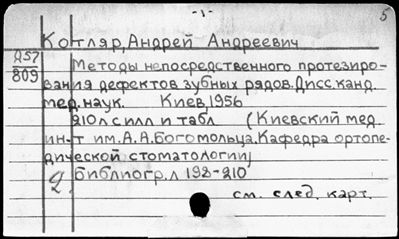 -1- 5
Котляр, Андрей Андреевич
Д57
809
Методы непосредственного протезиро-
вания дефектов зубных рядов. Дисс. канд.
мед. наук. Киев, 1956
210 л с илл и табл (Киевский мед.
ин-т им. А.А. Богомольца. Кафедра ортопе-
дической стоматологии)
2. Библиогр. л 198-210
см. след. карт.